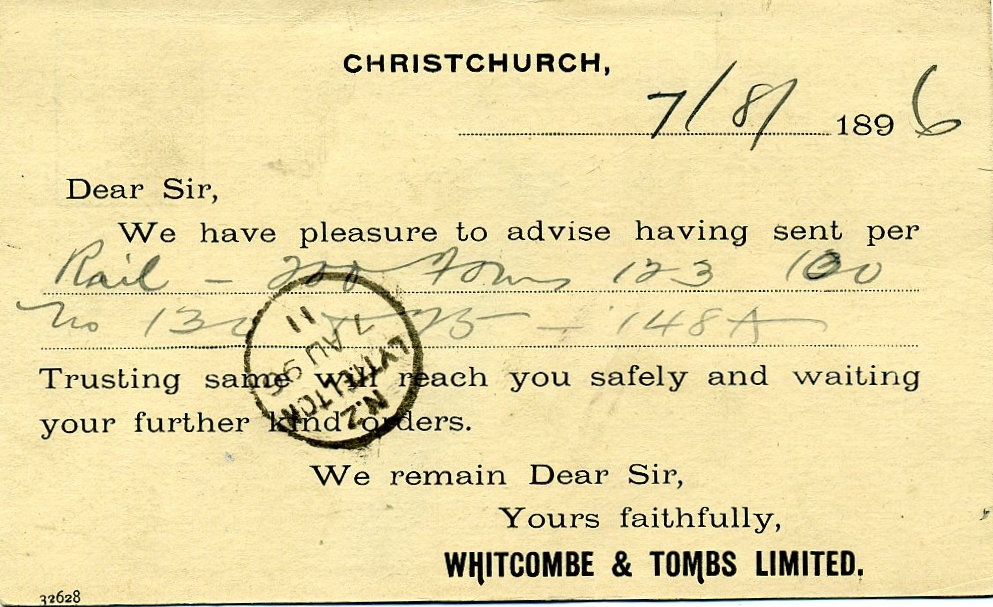 CHRISTCHURCH,
7/8/ 1896
Dear Sir,
We have pleasure to advise having sent per
Rail – 200 Forms 123 100
No 130 75 – 148A
Trusting same will reach you safely and waiting
your further kind orders.
LYTTELTON
N.Z.
11
7
AU 96
We remain Dear Sir,
Yours faithfully,
WHITCOMBE & TOMBS LIMITED.
32628